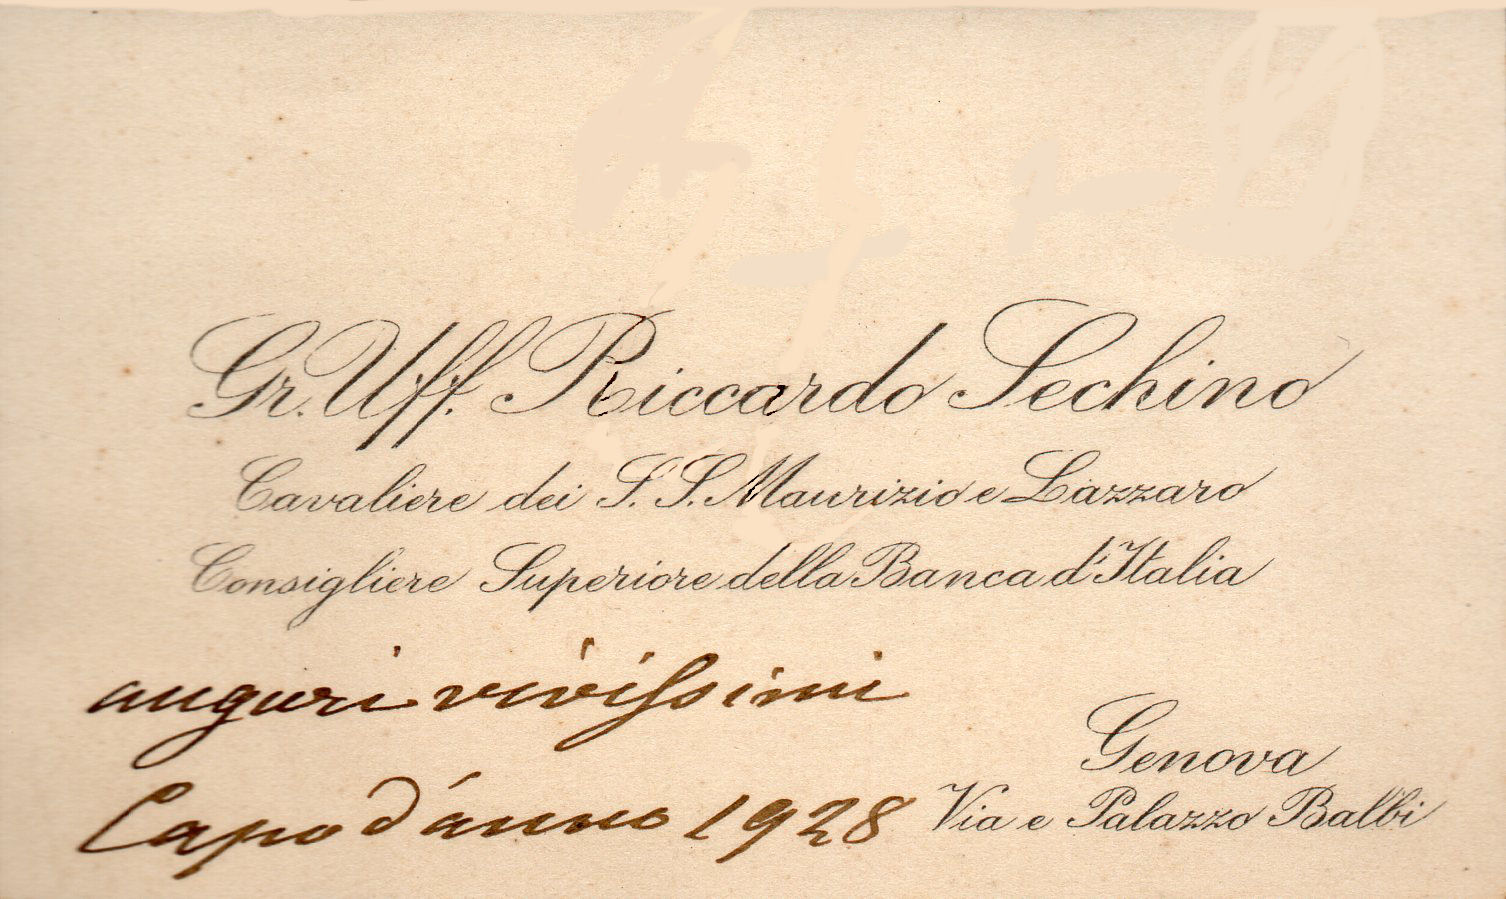 Gr. Uff. Riccardo Sechino
Cavaliere dei S. S. Maurizio e Lazzaro
Consigliere Superiore della Banca d'Italia
auguri vivissimi
Capo d'anno 1928
Genova
Via e Palazzo Balbi